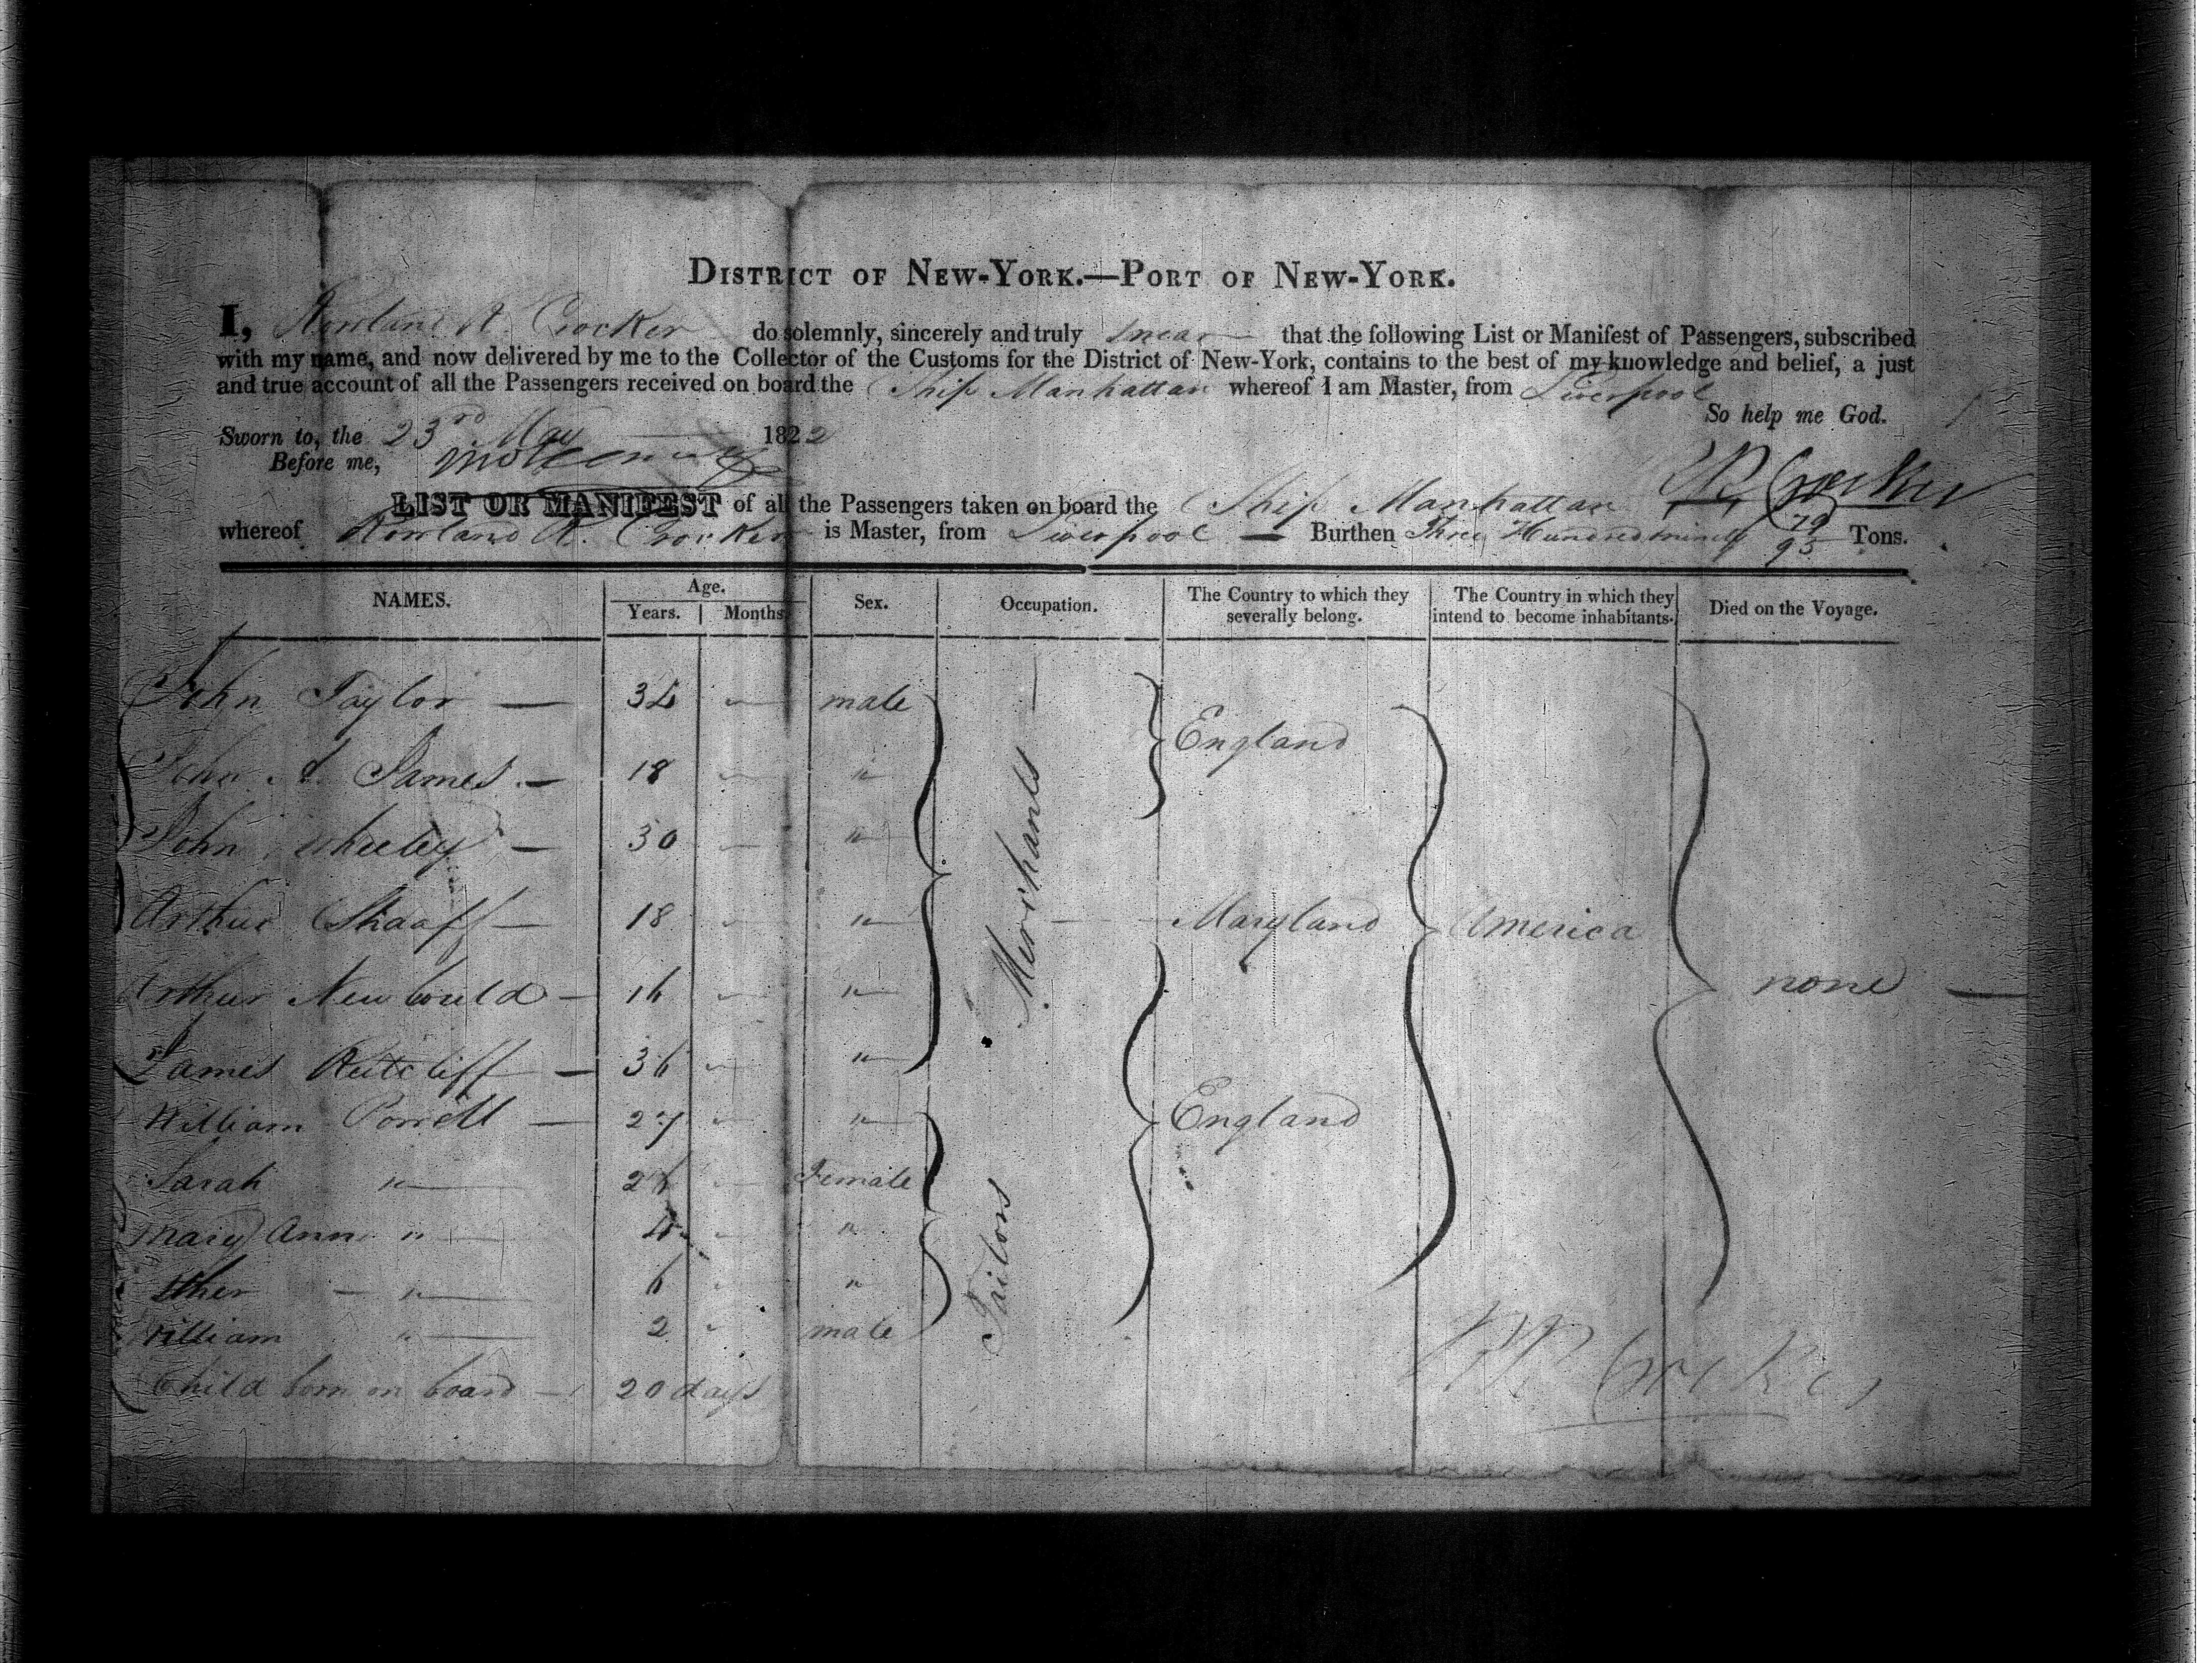 DISTRICT OF NEW-YORK.—PORT OF NEW-YORK.
I, Rowland R. Crocker do solemnly, sincerely and truly swear that the following List or Manifest of Passengers, subscribed
with my name, and now delivered by me to the Collector of the Customs for the District of New-York, contains to the best of my knowledge and belief, a just
and true account of all the Passengers received on board the Ship Manhattan whereof I am Master, from Liverpool
So help me God.
Sworn to, the 23rd May 1822
Before me,
R R Crocker
LIST OR MANIFEST of all the Passengers taken on board the Ship Manhattan
whereof Rowland R. Crocker is Master, from Liverpool — Burthen Three Hundred ninety 79/95 Tons.
NAMES. Age. Years. Months Sex. Occupation. The Country to which they severally belong. The Country in which they intend to become inhabitants. Died on the Voyage.
John Taylor — 34 " male
England
John A. James — 18 " "
John Wheeley — 30 " "
Merchants
Arthur Shaaff — 18 " " Maryland America
Arthur Newbould — 16 " " none —
James Rutcliff — 36 " "
William Powell — 27 " " England
Sarah " 26 " Female
Mary Ann " 4 " "
Tailors
Esther " 6 " "
William " 2 " male
Child born on board — 20 days
R R Crocker